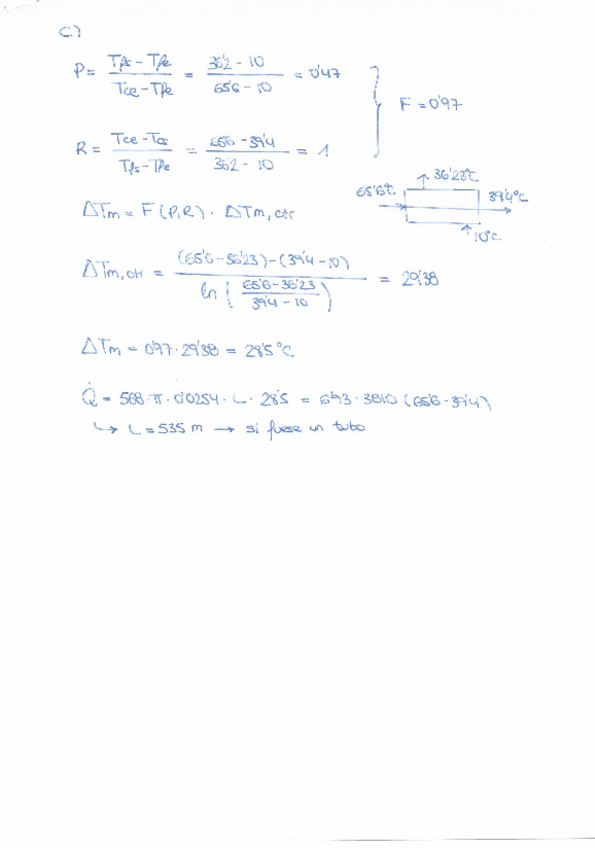 C)
P = (Tfs - Tfe)/(Tce - Tfe) = (36'2 - 10)/(65'6 - 10) = 0'47
F = 0'97
R = (Tce - Tcs)/(Tfs - Tfe) = (65'6 - 39'4)/(36'2 - 10) = 1
36'23°C
65'6°C
39'4°C
10°C
ΔTm = F(P,R) · ΔTm,ctr
ΔTm,ctr = ((65'6 - 36'23) - (39'4 - 10))/(ln((65'6 - 36'23)/(39'4 - 10))) = 29'38
ΔTm = 0'97 · 29'38 = 28'5°C
Q̇ = 568 · π · 0'0254 · L · 28'5 = 6'93 · 3810 (65'6 - 39'4)
↳ L = 535 m → si fuese un tubo